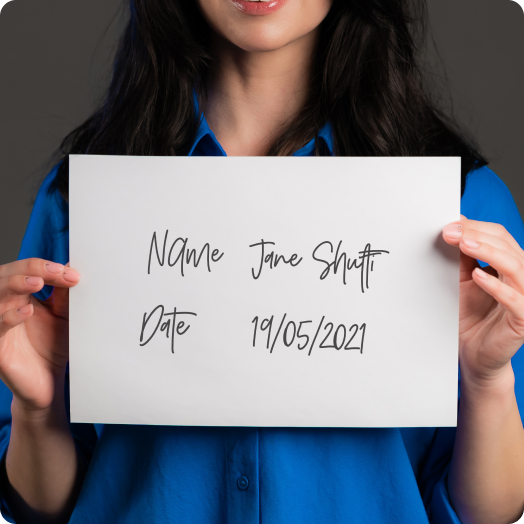 Name Jane Shutti
Date 19/05/2021